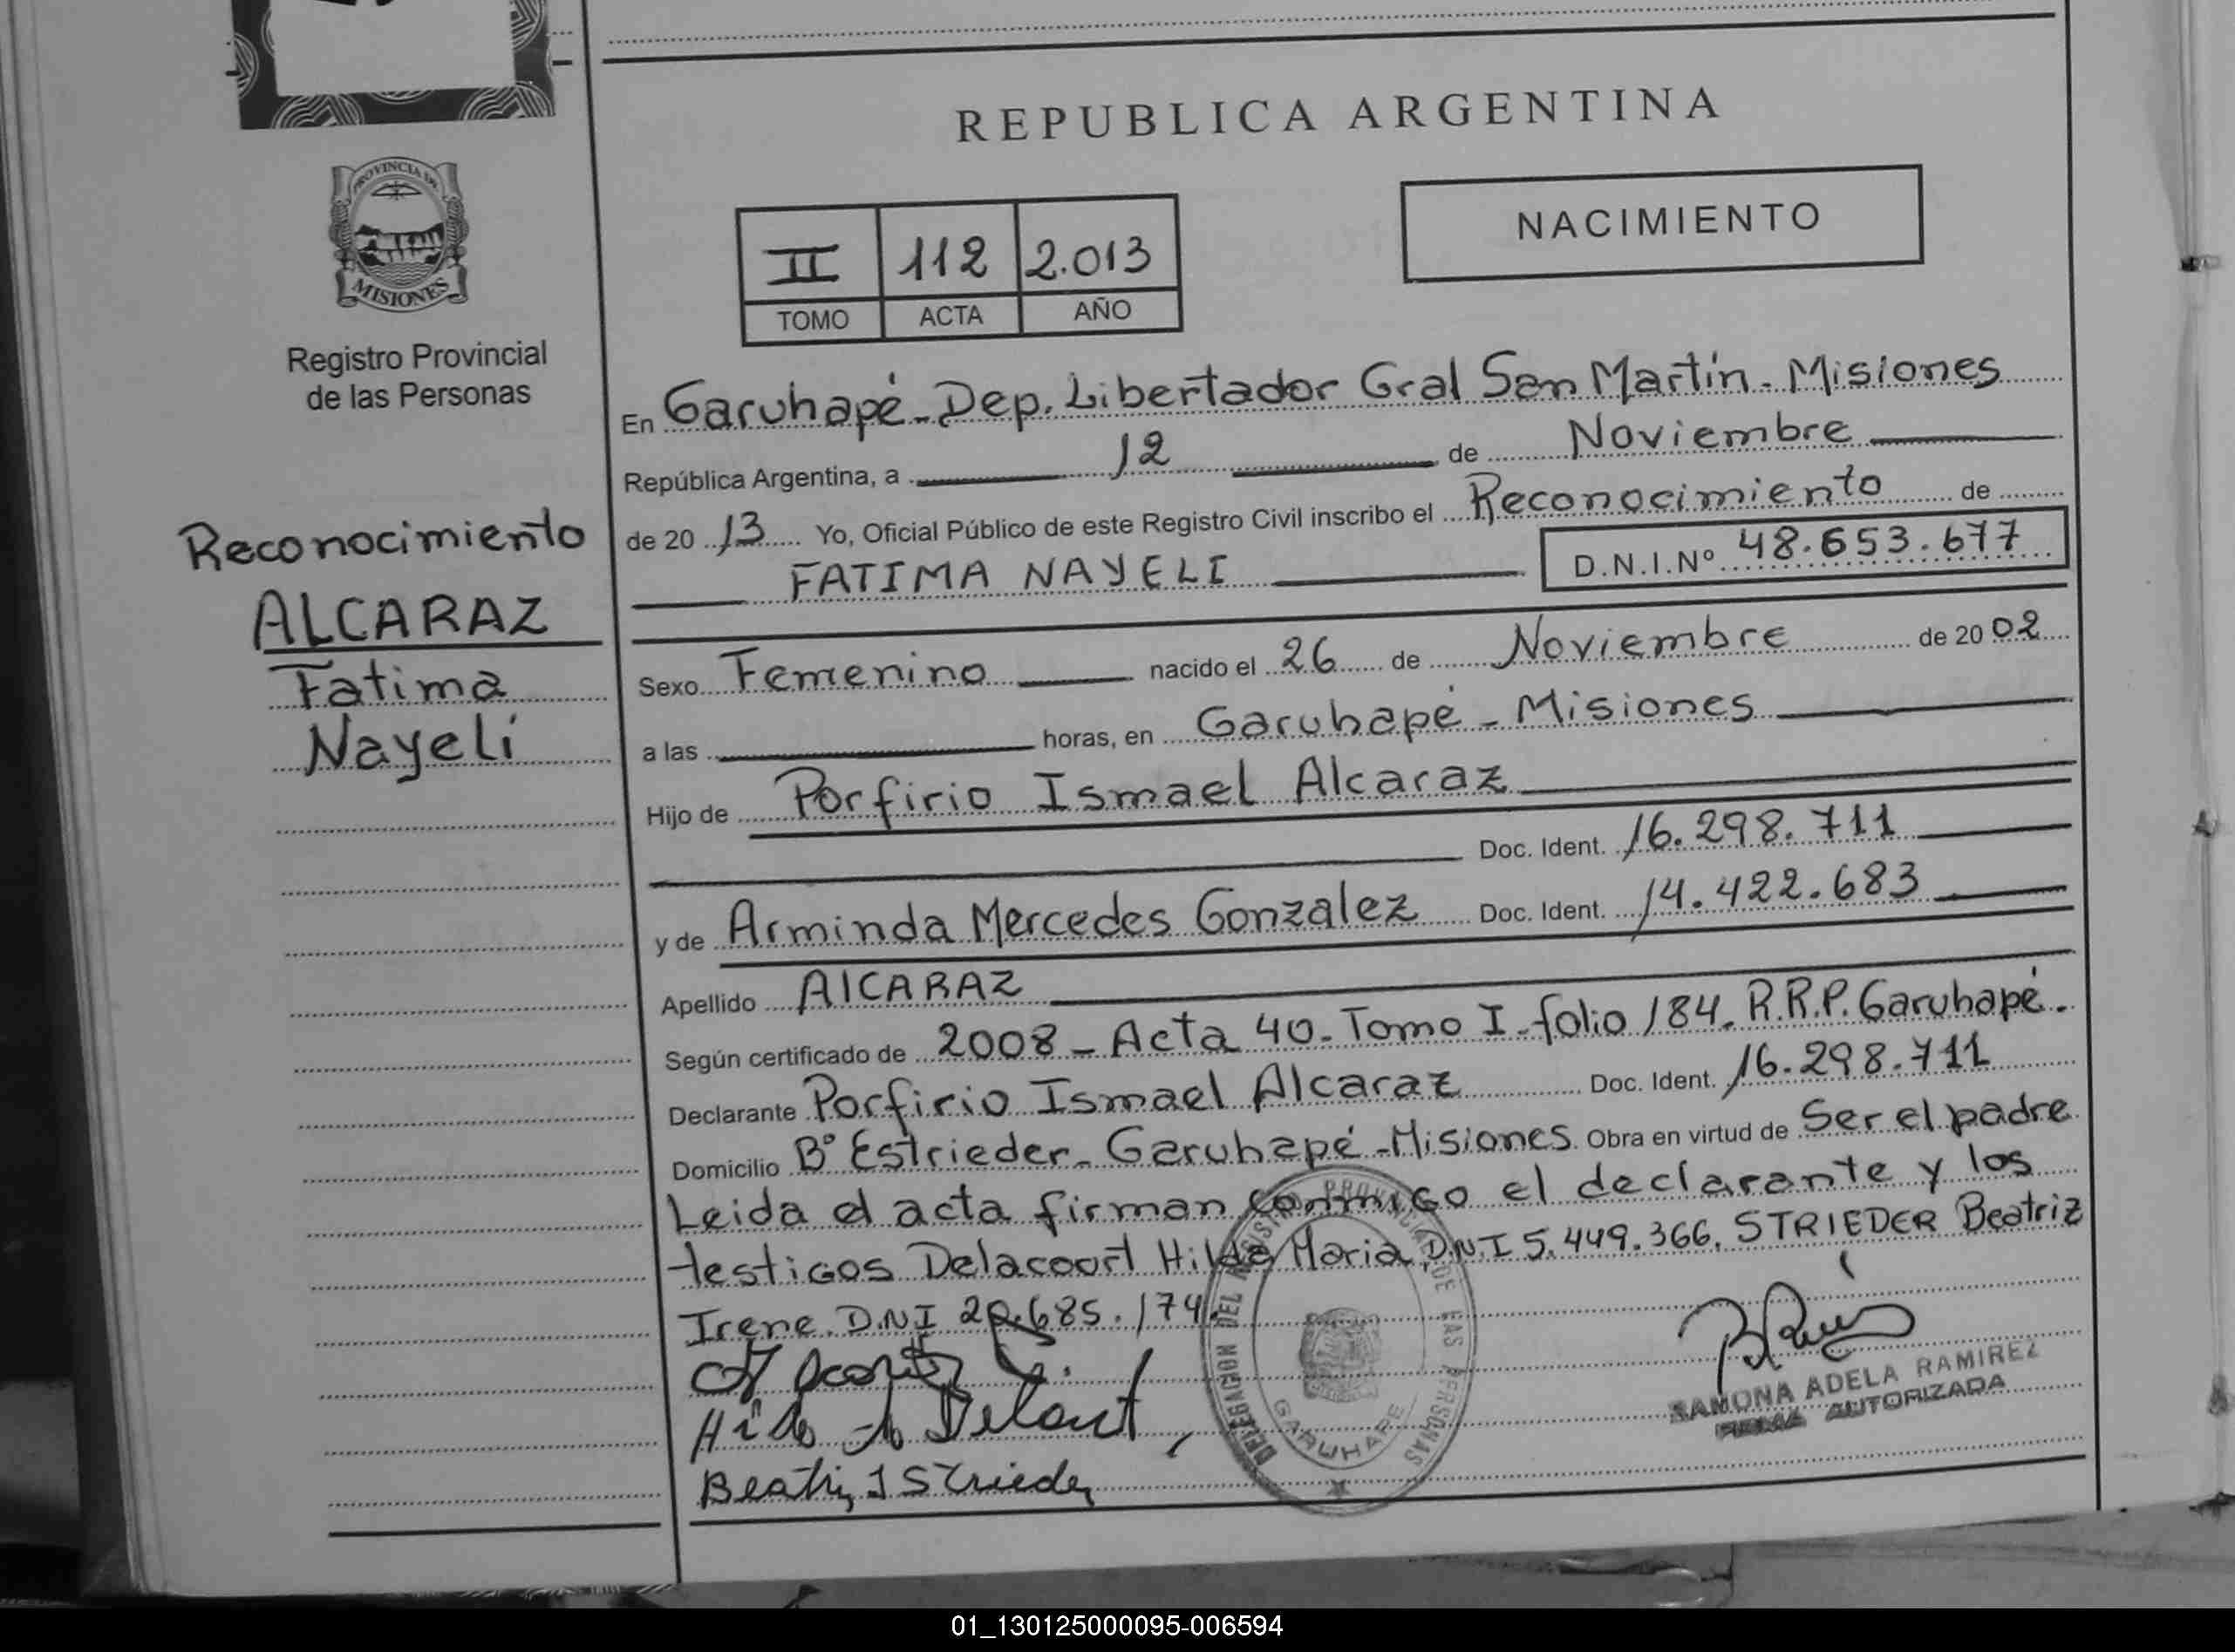 REPUBLICA ARGENTINA
PROVINCIA DE
MISIONES
Registro Provincial
de las Personas
II 112 2.013
TOMO ACTA AÑO
NACIMIENTO
En Garuhapé - Dep. Libertador Gral San Martín - Misiones
República Argentina, a 12 de Noviembre
de 20 13 Yo, Oficial Público de este Registro Civil inscribo el Reconocimiento de
FATIMA NAYELI D.N.I.Nº 48.653.677
Reconocimiento
ALCARAZ
Fatima
Nayeli
Sexo Femenino nacido el 26 de Noviembre de 20 02
a las horas, en Garuhapé - Misiones
Hijo de Porfirio Ismael Alcaraz
Doc. Ident. 16.298.711
y de Arminda Mercedes Gonzalez Doc. Ident. 14.422.683
Apellido AlCARAZ
Según certificado de 2008 - Acta 40 - Tomo I - folio 184. R.R.P. Garuhapé.
Declarante Porfirio Ismael Alcaraz Doc. Ident. 16.298.711
Domicilio Bº Estrieder - Garuhapé - Misiones Obra en virtud de Ser el padre
Leida el acta firman conmigo el declarante y los
testigos Delacourt Hilda Maria, D.N.I 5.449.366, STRIEDER Beatriz
Irene D.N.I 20.685.174.
Beatriz I Strieder
DELEGACION DEL REGISTRO PROVINCIAL DE LAS PERSONAS
GARUHAPE
RAMONA ADELA RAMIREZ
FIRMA AUTORIZADA
01_130125000095-006594